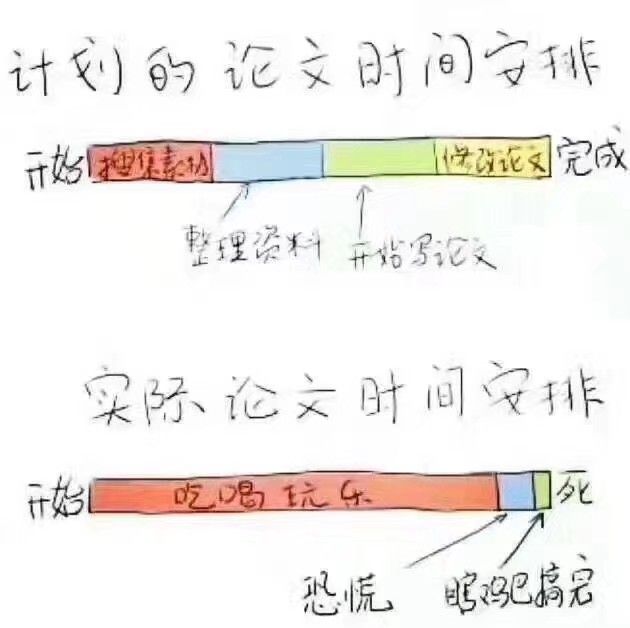 计划的论文时间安排
开始 搜集素材 修改论文 完成
整理资料 开始写论文
实际论文时间安排
开始 吃喝玩乐 死
恐慌 瞎鸡巴搞完